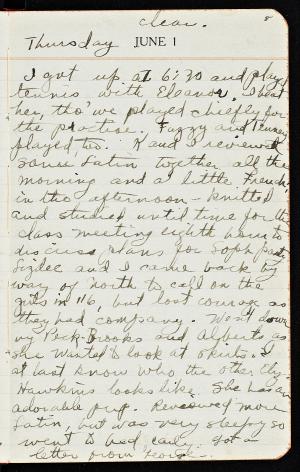 clear. 8
Thursday JUNE 1
I got up at 6:30 and played
tennis with Eleanor. I beat
her, tho' we played chiefly for
the practise. Fuzzy and
played, too. K and I reviewed
some Latin together all the
morning and a little French
in the afternoon - knitted
and studied until time for the
class meeting eighth hour to
discuss plans for Soph party.
and I came back by
way of North to call on the
girls in 116, but lost courage as
they had company. Went down
by Peck-Brooks and Alberts as
she wanted to look at skirts. I
at last know who the other
Hawkins looks like. She has an
adorable pup. Reviewed more
Latin, but was very sleepy so
went to bed early. Got a
letter from George.